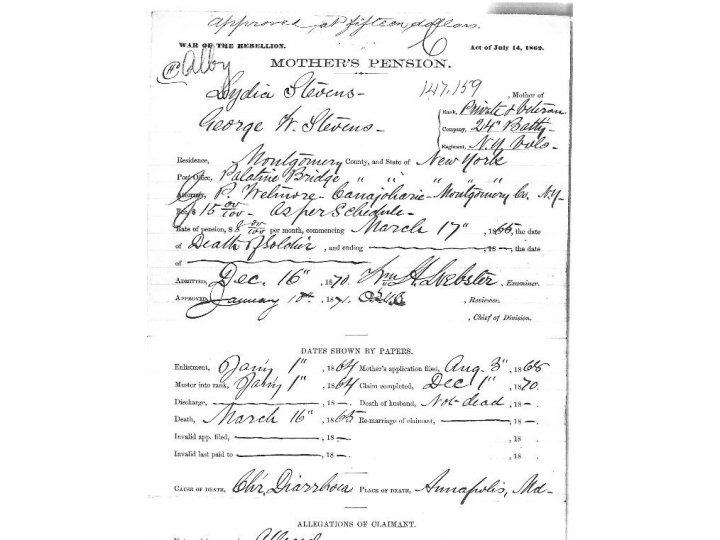 Approved at fifteen dollars.
WAR OF THE REBELLION. Act of July 14, 1862.
Alby
MOTHER'S PENSION.
Lydia Stevens - 147,159 , Mother of
George W. Stevens - Rank, Private & Veteran
Company, 24" Batty -
Regiment, N.Y. Vols -
Residence, Montgomery County, and State of New York
Post Office, Palatine Bridge, " " " " "
Attorney, P. Wetmore - Canajoharie - Montgomery Co. N.Y -
Fee, $ 15 00/100 - As per Schedule -
Rate of pension, $ 8 00/100 per month, commencing March 17", 1865, the date
of Death of Soldier, and ending , 18 — , the date
of
ADMITTED, Dec. 16" , 1870. Wm H. Webster , Examiner.
APPROVED, January , 1871. , Reviewer.
, Chief of Division.
DATES SHOWN BY PAPERS.
Enlistment, Jan'y 1" , 1864 Mother's application filed, Aug. 3" , 1868
Muster into rank, Jan'y 1" , 1864 Claim completed, Dec 1" , 1870.
Discharge, — , 18 — . Death of husband, Not dead , 18 — .
Death, March 16" , 1865 Re-marriage of claimant, — , 18 — .
Invalid app. filed, — , 18 — . , 18 .
Invalid last paid to — , 18 — . , 18 .
CAUSE OF DEATH, Chr. Diarrhoea PLACE OF DEATH, Annapolis, Md -
ALLEGATIONS OF CLAIMANT.